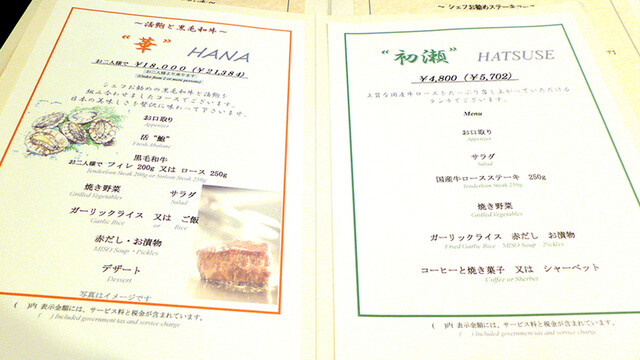 ～活鮑と黒毛和牛～
“華” HANA
お二人様で ￥18,000 (￥21,384)
シェフお勧めの黒毛和牛と活鮑を
組み合わせましたコースでございます。
日本の美味しさを贅沢に味わって下さいませ。
お口取り
Appetizer
活 “鮑”
Fresh Abalone
黒毛和牛
お二人様で フィレ 200g 又は ロース 250g
Tenderloin Steak 200g or Sirloin Steak 250g
焼き野菜 サラダ
Grilled Vegetables Salad
ガーリックライス 又は ご飯
Garlic Rice or Rice
赤だし・お漬物
MISO Soup・Pickles
デザート
Dessert
写真はイメージです
( )内 表示金額には、サービス料と税金が含まれています。
( ) Included government tax and service charge
～シェフお勧めステーキ
“初瀬” HATSUSE
￥4,800 (￥5,702)
上質な国産牛ロースをたっぷり召し上がっていただける
ランチでございます。
Menu
お口取り
Appetizer
サラダ
Salad
国産牛ロースステーキ 250g
Tenderloin Steak 250g
焼き野菜
Grilled Vegetables
ガーリックライス 赤だし お漬物
Fried Garlic Rice MISO Soup Pickles
コーヒーと焼き菓子 又は シャーベット
Coffee or Sherbet
( )内 表示金額には、サービス料と税金が含まれています。
( ) Included government tax and service charge